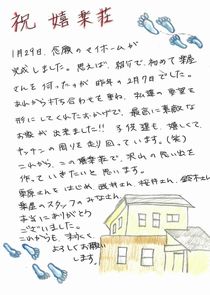 祝 嬉楽荘
1月29日、念願のマイホームが
完成しました。思えば、初めて、初めて楽座
さんを伺ったのが昨年の2月7日でした。
あれから打ち合わせを重ね、私達の希望を
形にしてくれたおかげで、最高に素敵な
お家が出来ました!! 子供達も、嬉しくて
キッチンの周りを走り回っています。(笑)
これから、この嬉楽荘で、沢山の思い出を
作っていきたいと思います。
栗原さんをはじめ、武井さん、桜井さん、鈴木さん
楽座のスタッフのみなさん
本当にありがとう
ございました。
これからも、末永く、
よろしくお願い
します。